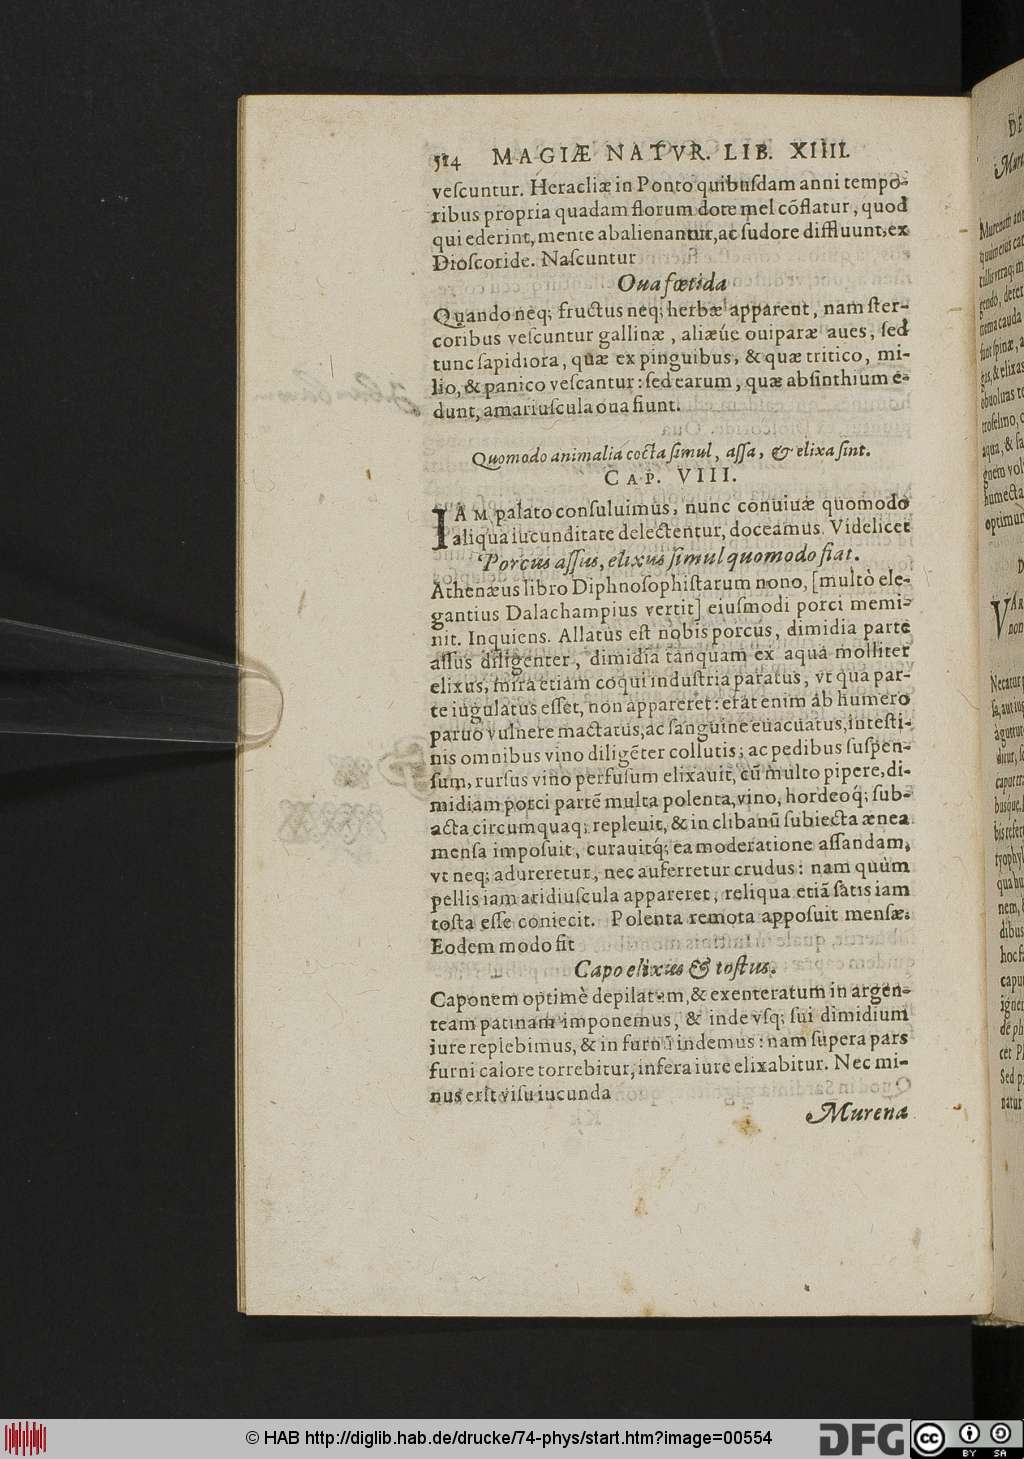 514 MAGIÆ NATVR. LIB. XIIII.
veſcuntur. Heracliæ in Ponto quibuſdam anni tempo-
ribus propria quadam florum dote mel cõflatur, quod
qui ederint, mente abalienantur, ac ſudore diffluunt, ex
Dioſcoride. Naſcuntur
Oua fœtida
Quando neq; fructus neq; herbæ apparent, nam ſter-
coribus veſcuntur gallinæ, aliæúe ouiparæ aues, ſed
tunc ſapidiora, quæ ex pinguibus, & quæ tritico, mi-
lio, & panico veſcantur: ſed earum, quæ abſinthium e-
dunt, amariuſcula oua fiunt.
Quomodo animalia cocta ſimul, aſſa, & elixa ſint.
CAP. VIII.
IAM palato conſuluimus, nunc conuiuæ quomodo
aliqua iucunditate delectentur, doceamus. Videlicet
Porcus aſſus, elixus ſimul quomodo fiat.
Athenæus libro Diphnoſophiſtarum nono, [multò ele-
gantius Dalachampius vertit] eiuſmodi porci memi-
nit. Inquiens. Allatus eſt nobis porcus, dimidia parte
aſſus diligenter, dimidia tanquam ex aqua molliter
elixus, mira etiam coqui induſtria paratus, vt qua par-
te iugulatus eſſet, non appareret: erat enim ab humero
paruo vulnere mactatus, ac ſanguine euacuatus, inteſti-
nis omnibus vino diligẽter collutis; ac pedibus ſuſpen-
ſum, rurſus vino perfuſum elixauit, cũ multo pipere, di-
midiam porci partẽ multa polenta, vino, hordeoq́; ſub-
acta circumquaq; repleuit, & in clibanũ ſubiecta ænea
menſa impoſuit, curauitq́; ea moderatione aſſandam,
vt neq; adureretur, nec auferretur crudus: nam quùm
pellis iam aridiuſcula appareret, reliqua etiã ſatis iam
toſta eſſe coniecit. Polenta remota appoſuit menſæ.
Eodem modo fit
Capo elixus & toſtus.
Caponem optimè depilatum, & exenteratum in argen-
team patinam imponemus, & inde vſq; ſui dimidium
iure replebimus, & in furnũ indemus: nam ſupera pars
furni calore torrebitur, infera iure elixabitur. Nec mi-
nus erit viſu iucunda
Murena
© HAB http://diglib.hab.de/drucke/74-phys/start.htm?image=00554
DFG
cc
BY SA